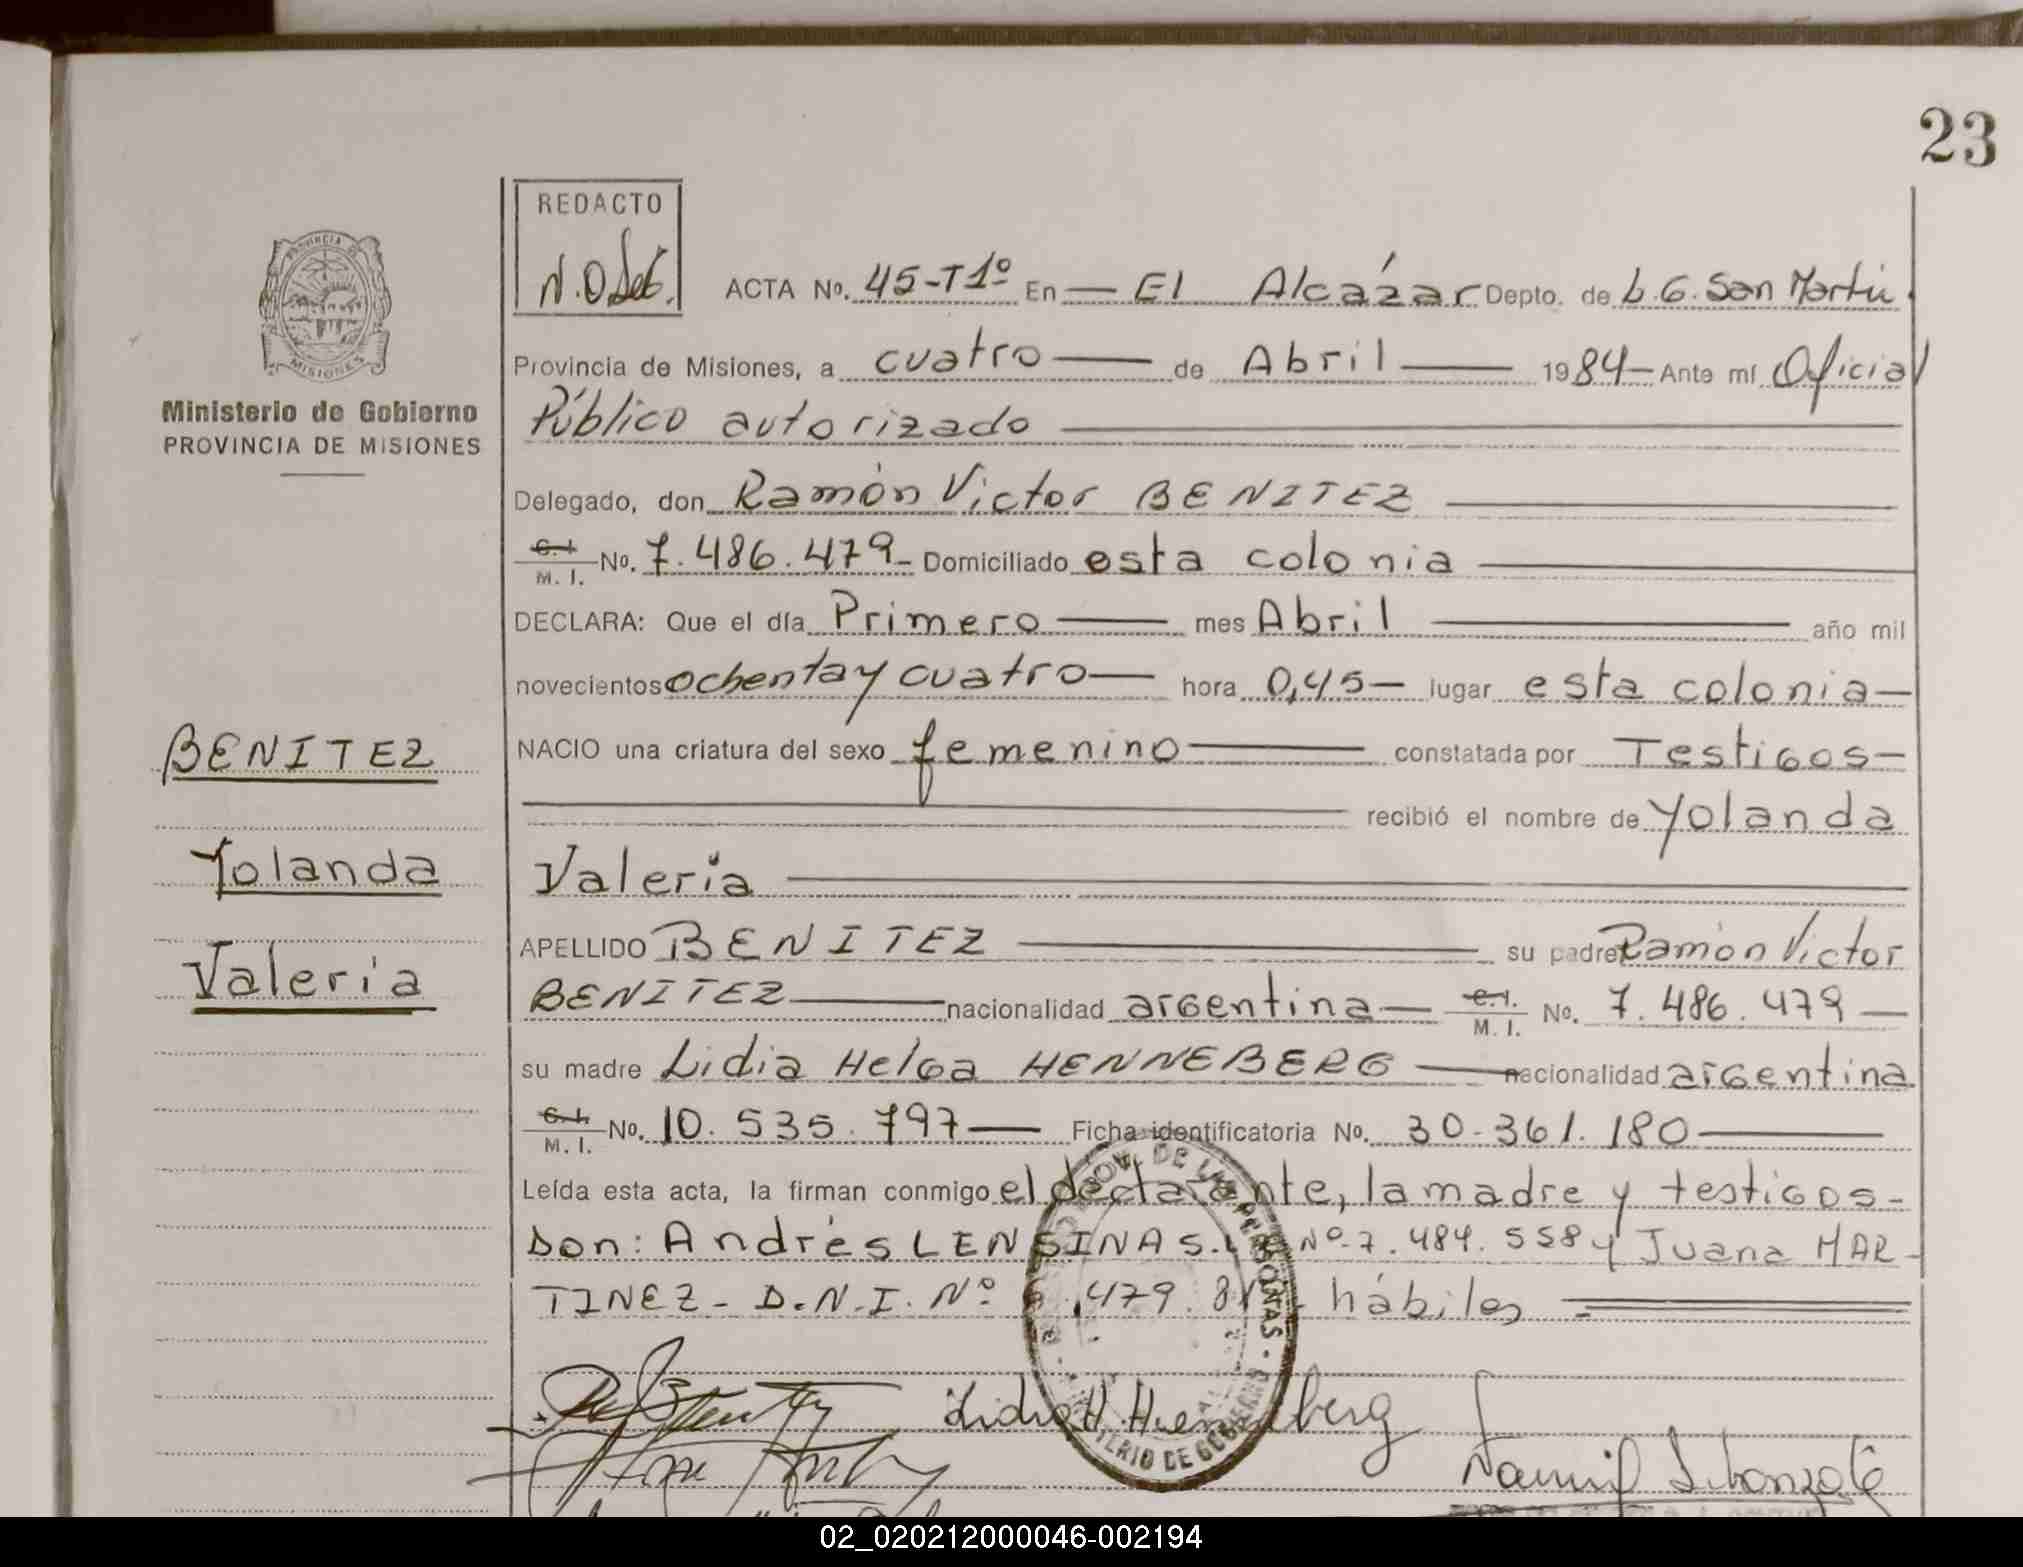 23
REDACTO
PROVINCIA DE
MISIONES
Ministerio de Gobierno
PROVINCIA DE MISIONES
ACTA No. 45-T1º En — El Alcázar Depto. de L.G. San Martín
Provincia de Misiones, a cuatro — de Abril — 1984— Ante mí Oficial
Público autorizado
Delegado, don Ramón Victor BENITEZ
C. I. M. I. No. 7.486.479- Domiciliado esta colonia
DECLARA: Que el día Primero — mes Abril — año mil
novecientos ochenta y cuatro — hora 0,45— lugar esta colonia—
BENITEZ
NACIO una criatura del sexo femenino — constatada por Testigos—
recibió el nombre de Yolanda
Yolanda
Valeria
APELLIDO BENITEZ — su padre Ramón Victor
Valeria
BENITEZ — nacionalidad argentina — C. I. M. I. No. 7.486.479 —
su madre Lidia Helga HENNEBERG — nacionalidad argentina
C. I. M. I. No. 10.535.797 — Ficha identificatoria No. 30-361.180 —
Leída esta acta, la firman conmigo el declarante, la madre y testigos-
Don: Andrés LENSINAS. Nº-7.484.558 y Juana MAR-
TINEZ- D.N.I. Nº .479.8 - hábiles
DE LAS PERSONAS
MINISTERIO DE GOBIERNO
Lidia H. Henneberg
02_020212000046-002194